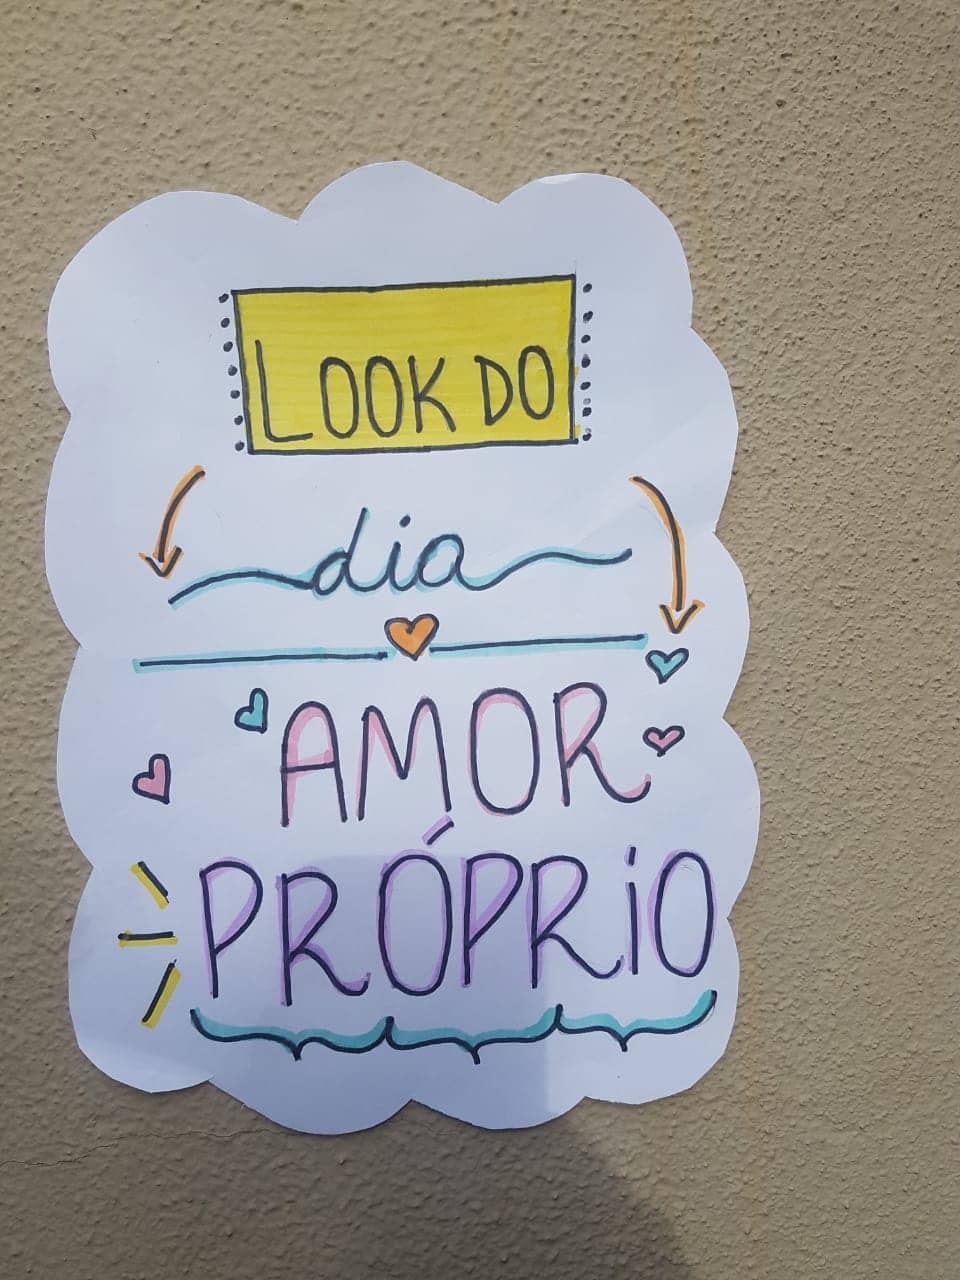 LOOK DO
dia
AMOR
PRÓPRiO